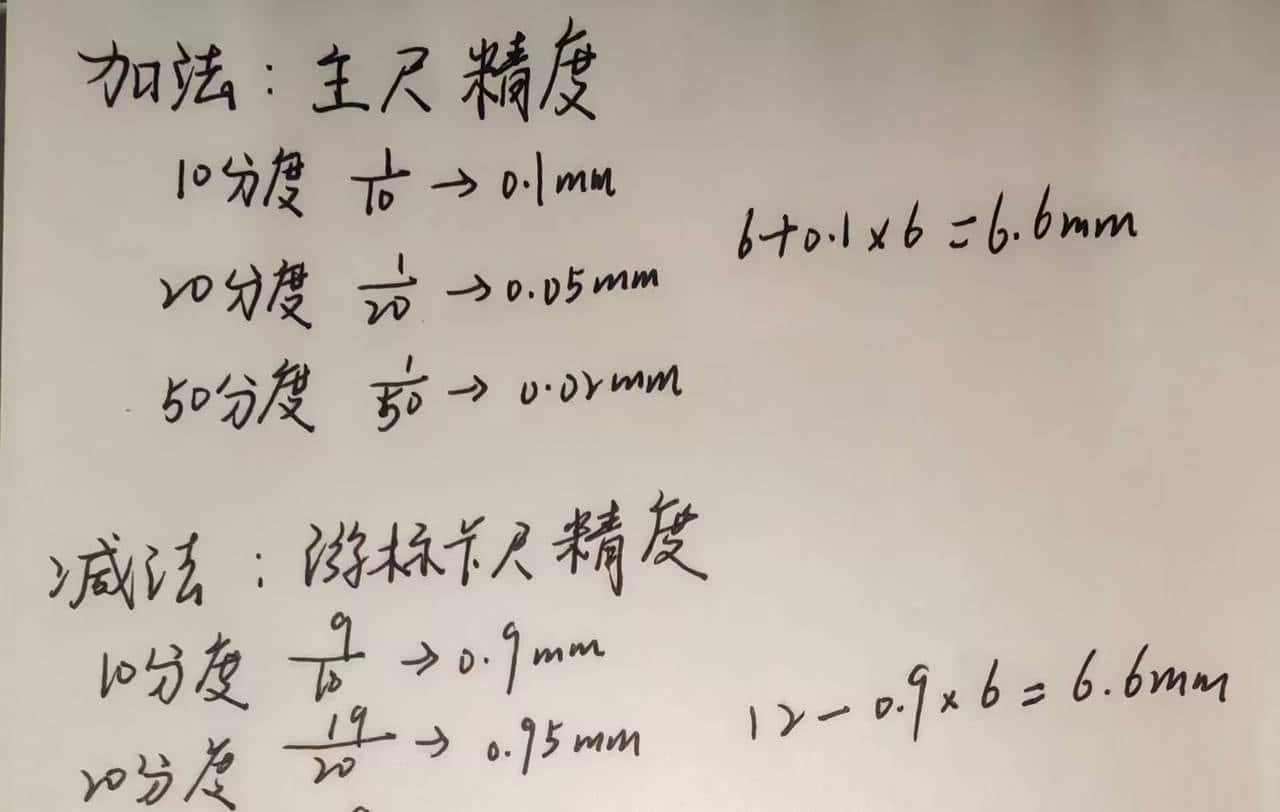 加法：主尺精度
10分度 1/10 → 0.1mm
6+0.1×6=6.6mm
20分度 1/20 → 0.05mm
50分度 1/50 → 0.02mm
减法：游标卡尺精度
10分度 9/10 → 0.9mm
12-0.9×6=6.6mm
20分度 19/20 → 0.95mm